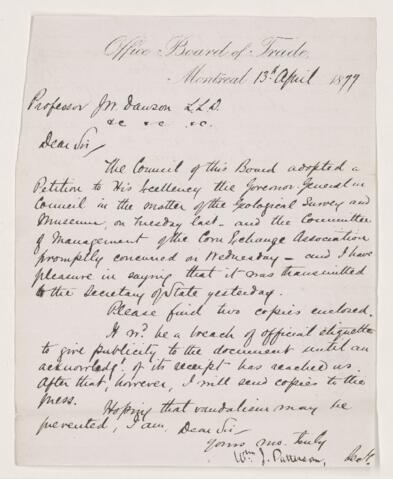 Office Board of Trade,
Montreal 13th April 1877
Professor J W Dawson L.L.D.
&c &c &c.
Dear Sir,
The Council of this Board adopted a
Petition to His Excellency the Governor-General in
Council in the matter of the Geological Survey and
Museum, on Tuesday last - and the Committee
of Management of the Corn Exchange Association
promptly concurred on Wednesday - and I have
pleasure in saying that it was transmitted
to the Secretary of State yesterday.
Please find two copies enclosed.
It wd. be a breach of official etiquette
to give publicity to the document until an
acknowledgt. of its receipt has reached us.
After that, however, I will send copies to the
press.
Hoping that vandalism may be
prevented, I am, Dear Sir
Yours mo. truly
Wm. J. Patterson, Secy.